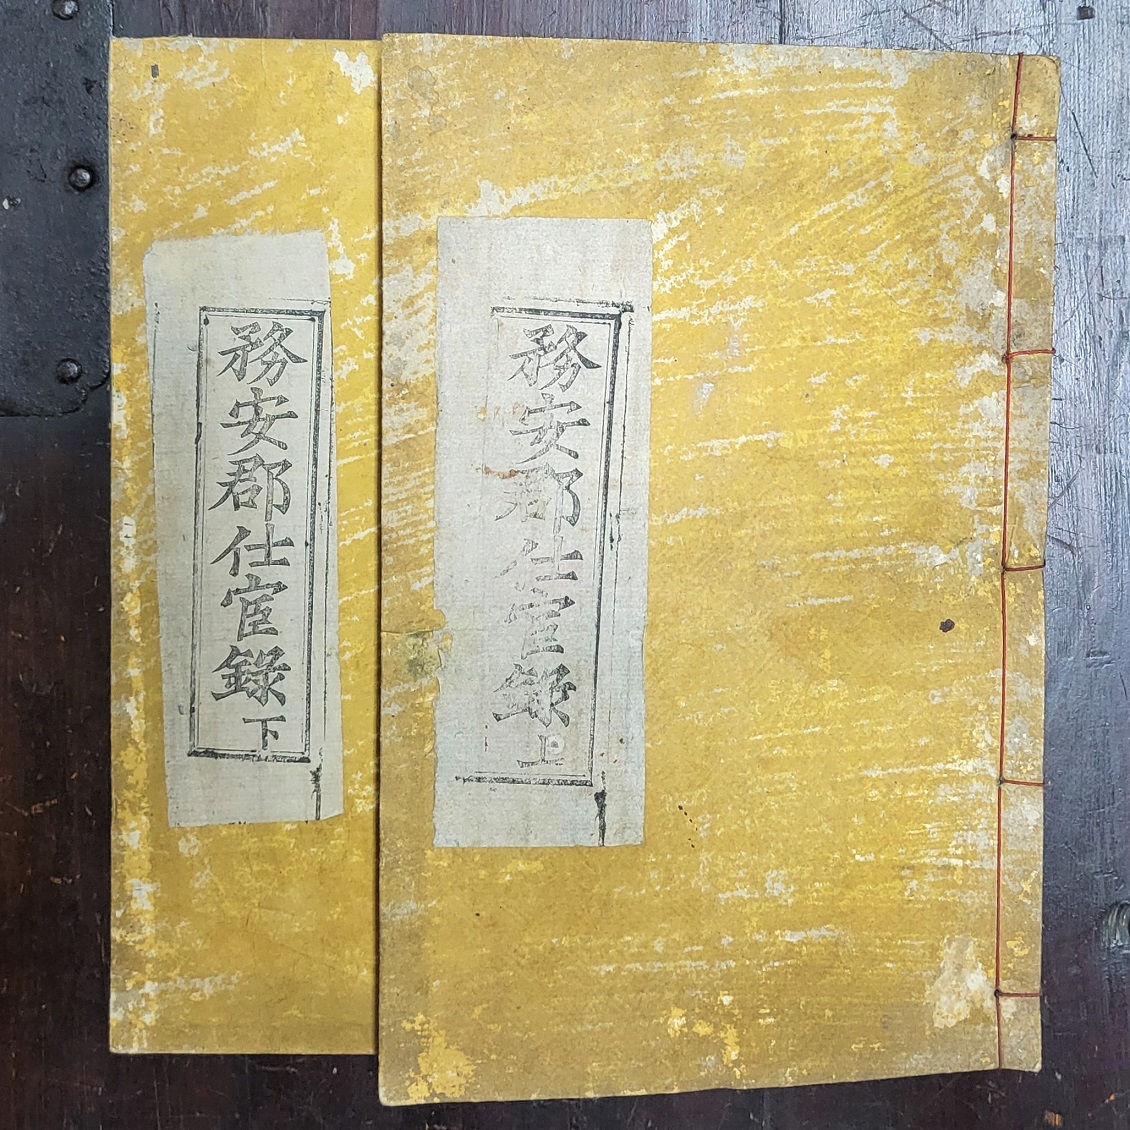 務安郡仕宦錄上
務安郡仕宦錄下